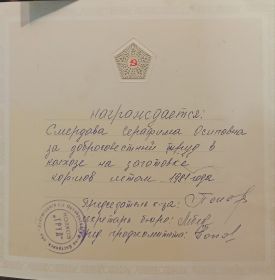 награждается:
Смердова Серафима Осиповна
за добросовестный труд в
колхозе на заготовке
кормов летом года
Председатель к-за: Попов
секретарь бюро:
пред профкомитета: Попов